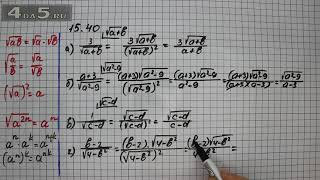 4DA5.RU
15.40
√ab = √a · √b
√(a/b) = √a/√b
(√a)² = a
√a²ⁿ = aⁿ
aⁿ · aᵏ = aⁿ⁺ᵏ
(aⁿ)ᵏ = aⁿᵏ
а) 3/√(a+b) = 3√(a+b)/(√(a+b))² = 3√(a+b)/(a+b)
б) (a+3)/√(a²-9) = (a+3)√(a²-9)/(√(a²-9))² = (a+3)√(a²-9)/(a²-9) = (a+3)√(a²-9)/((a+3)(a-3)) = √(a²-9)/(a-3)
в) 1/√(c-d) = √(c-d)/(√(c-d))² = √(c-d)/(c-d)
г) (b-2)/√(4-b²) = (b-2)·√(4-b²)/(√(4-b²))² = (b-2)√(4-b²)